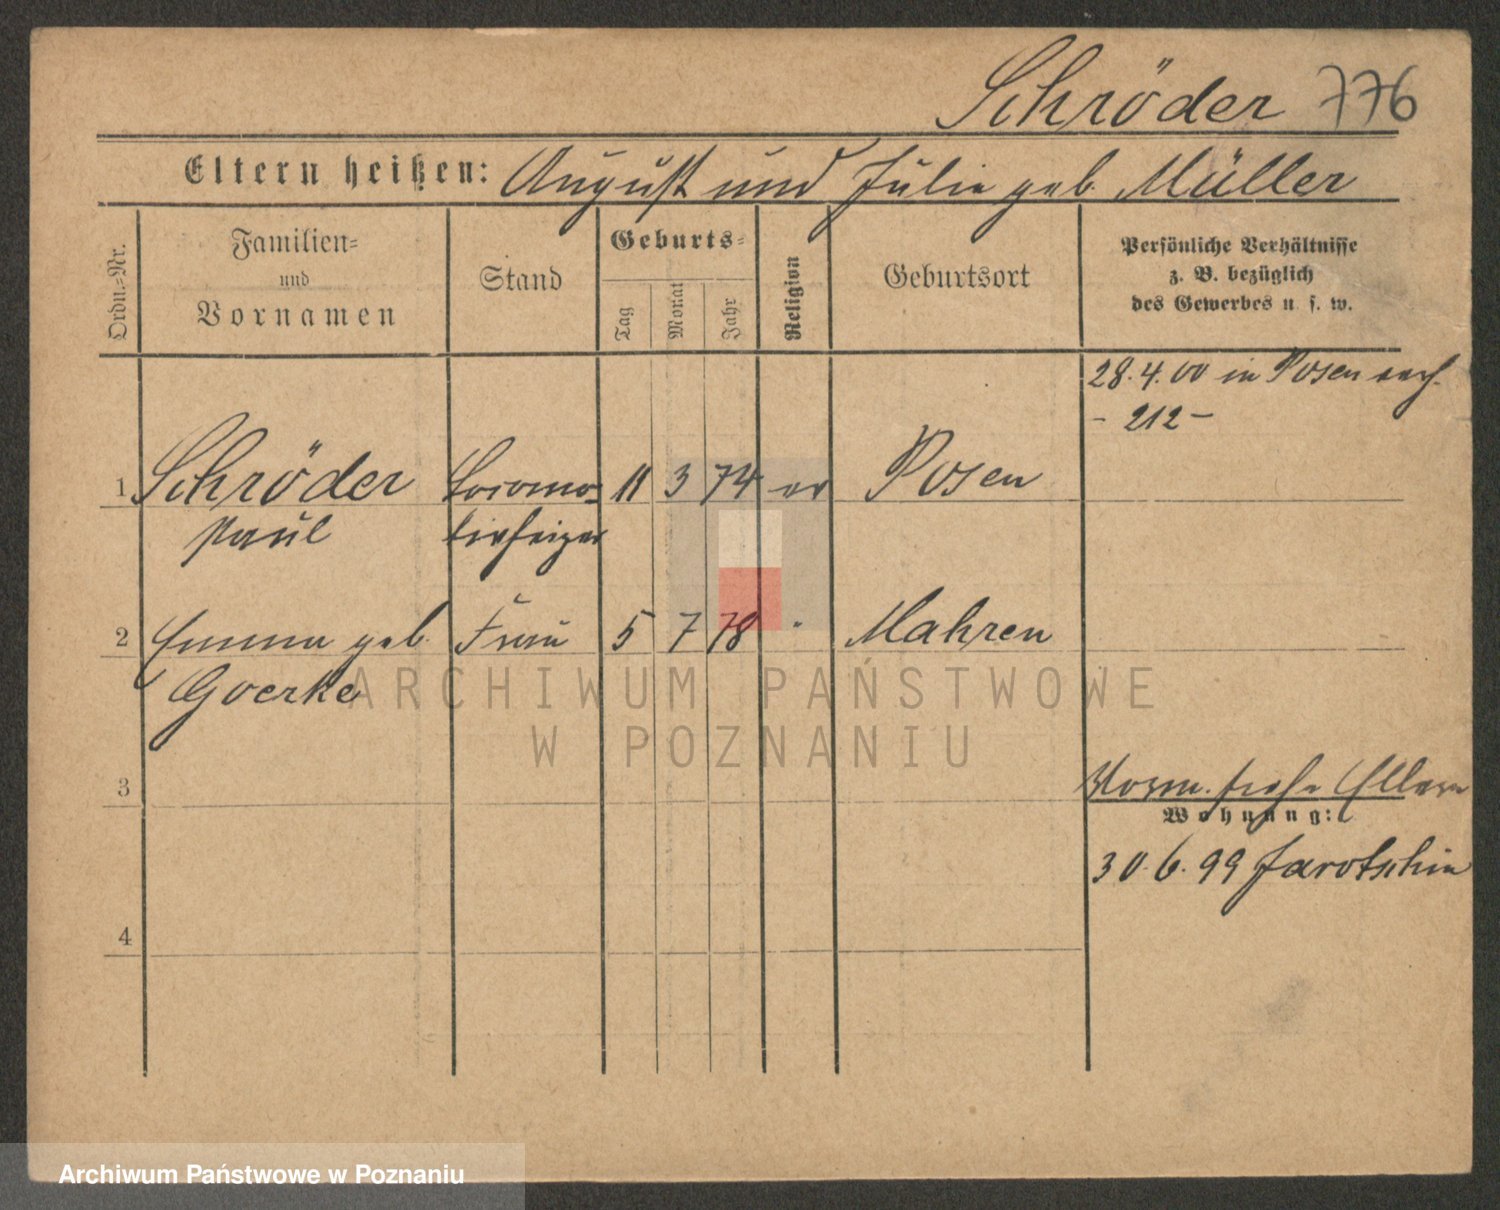 Schröder 776
Eltern heißen: August und Julie geb. Müller
Ordn.-Nr.
Familien-
und
Vornamen
Stand
Geburts-
Tag
Monat
Jahr
Religion
Geburtsort
Persönliche Verhältnisse
z. B. bezüglich
des Gewerbes u. s. w.
28.4.00 in Posen
- 212 -
1 Schröder Locomo- 11 3 74 ev Posen
Paul tivheizer
2 Emma geb. Frau 5 7 78 " Mahren
Goerke
3
Vorm. siehe Eltern
Wohnung:
30.6.99 Jarotschin
4
ARCHIWUM PAŃSTWOWE
W POZNANIU
Archiwum Państwowe w Poznaniu